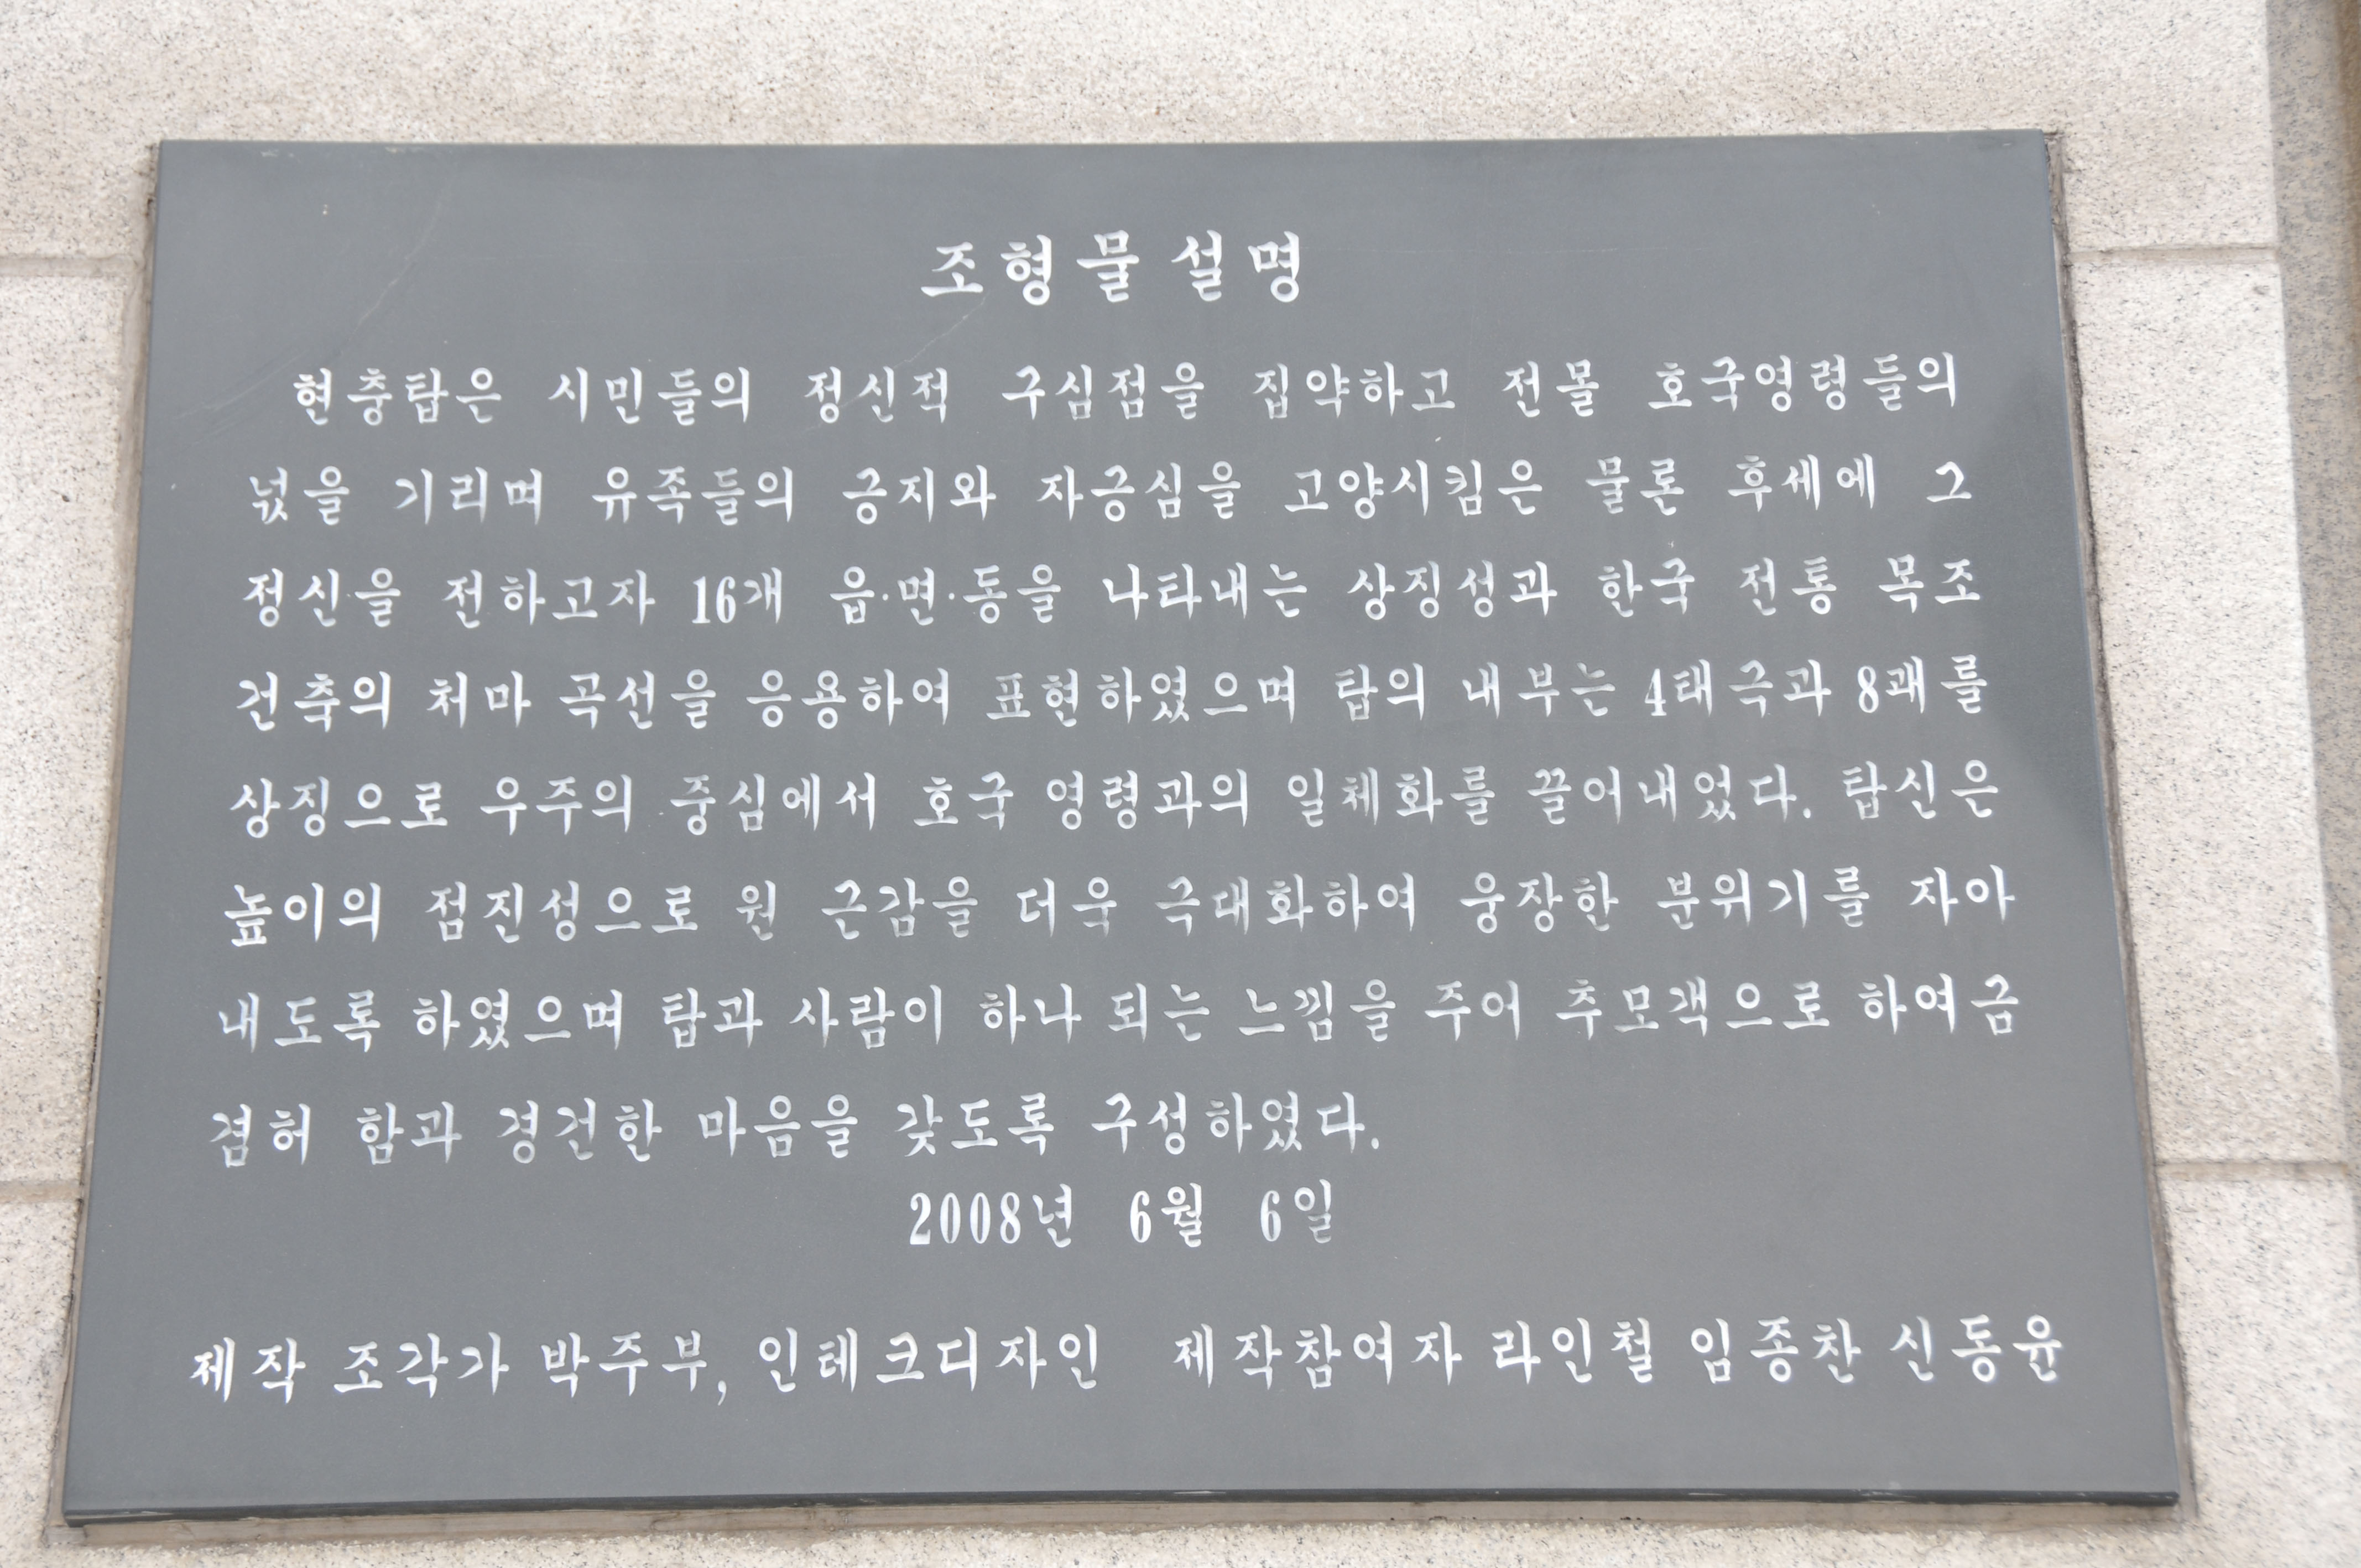 조형물설명
현충탑은 시민들의 정신적 구심점을 집약하고 전몰 호국영령들의
넋을 기리며 유족들의 긍지와 자긍심을 고양시킴은 물론 후세에 그
정신을 전하고자 16개 읍·면·동을 나타내는 상징성과 한국 전통 목조
건축의 처마 곡선을 응용하여 표현하였으며 탑의 내부는 4태극과 8괘를
상징으로 우주의 중심에서 호국 영령과의 일체화를 끌어내었다. 탑신은
높이의 점진성으로 원 근감을 더욱 극대화하여 웅장한 분위기를 자아
내도록 하였으며 탑과 사람이 하나 되는 느낌을 주어 추모객으로 하여금
겸허 함과 경건한 마음을 갖도록 구성하였다.
2008년 6월 6일
제작 조각가 박주부, 인테크디자인 제작참여자 라인철 임종찬 신동윤